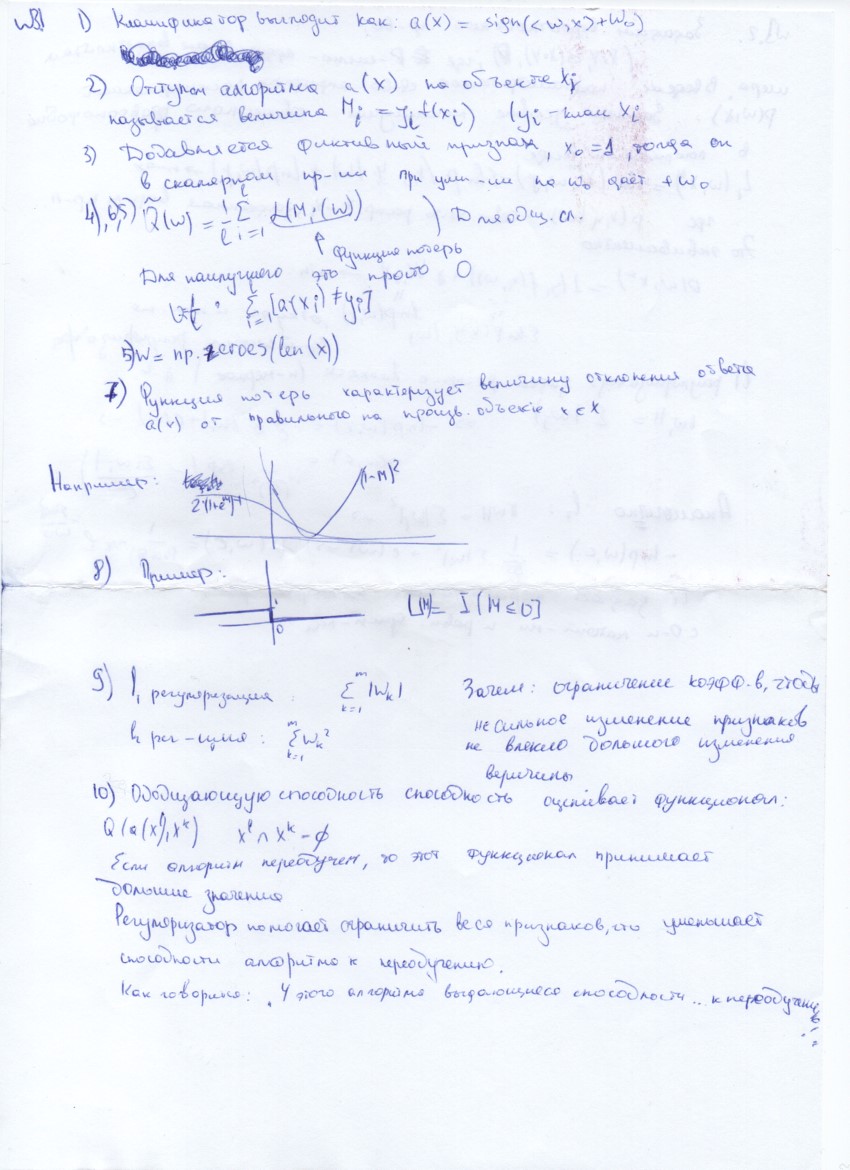 1) Классификатор выглядит как: a(x) = sign(<w,x>+w₀)
2) Отступом алгоритма a(x) на объекте xᵢ
называется величина Mᵢ = yᵢ f(xᵢ) (yᵢ - класс xᵢ
3) Добавляется фиктивный признак, x₀ = 1, тогда он
в скалярном пр-нии при умн-ии на w₀ даёт + w₀
4), 6), 5) Q̃(w) = 1/ℓ Σᵢ₌₁ˡ L(Mᵢ(w)) ) Для общ. сл.
↑ функция потерь
Для наилучшего это просто 0
Σᵢ₌₁ˡ [a(xᵢ) ≠ yᵢ]
5) w = np.zeroes(len(x))
7) Функция потерь характеризует величину отклонения ответа
a(x) от правильного на произв. объекте x ∈ X
Например:
(1-M)²
8) Пример:
1
0
L(M) = I[M ≤ 0]
9) l₁ регуляризация : Σₖ₌₁ᵐ |wₖ| Зачем: ограничение коэфф-в, чтобы
l₂ рег-ция : Σₖ₌₁ᵐ wₖ² не сильное изменение признаков
не влекло большого изменения
величины
10) Обобщающую способность способность оценивает функционал:
Q(a(xˡ), xᵏ) xˡ ∩ xᵏ = ∅
Если алгоритм переобучен, то этот функционал принимает
большие значения
Регуляризатор помогает ограничить веса признаков, что уменьшает
способности алгоритма к переобучению.
Как говорится: У этого алгоритма выдающиеся способности... к переобучению